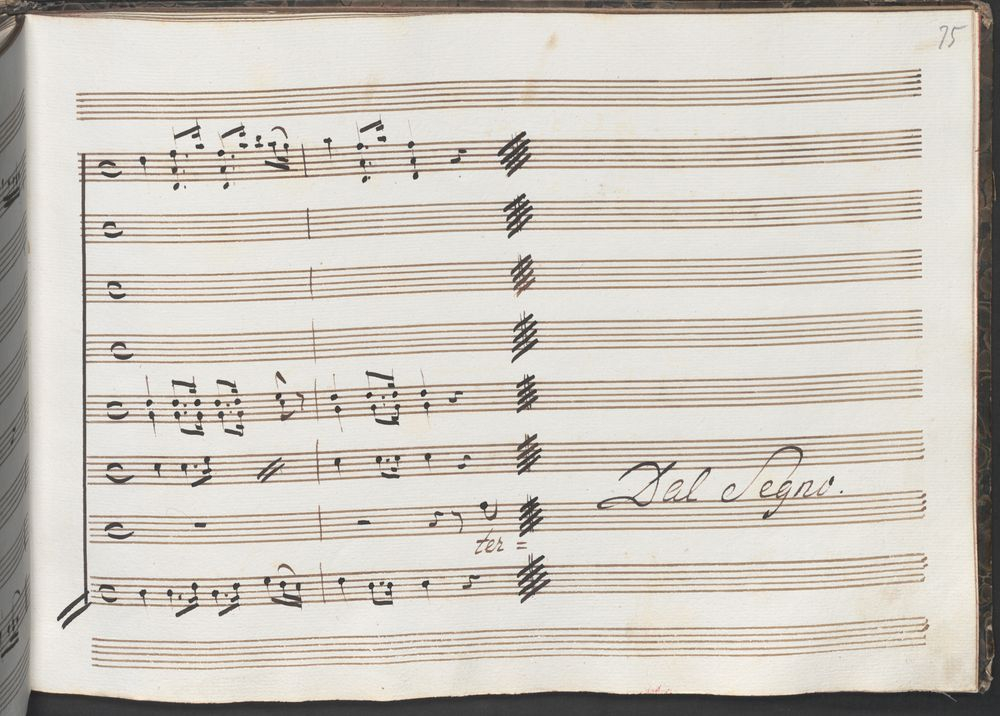 75
Dal Segno.
ter =